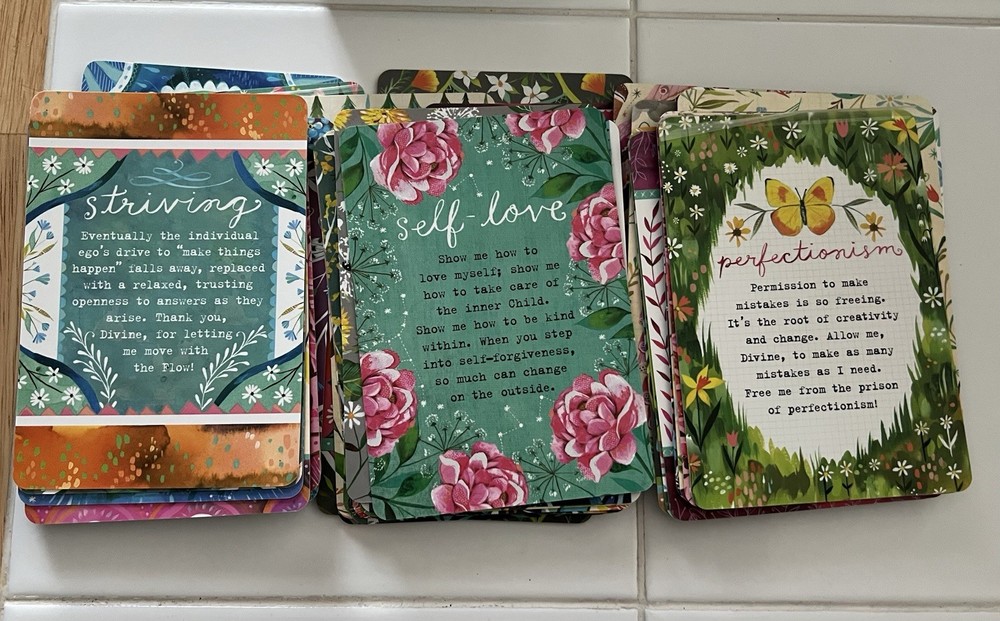 striving
Eventually the individual
ego's drive to "make things
happen" falls away, replaced
with a relaxed, trusting
openness to answers as they
arise. Thank you,
Divine, for letting
me move with
the Flow!
self-love
Show me how to
love myself; show me
how to take care of
the inner Child.
Show me how to be kind
within. When you step
into self-forgiveness,
so much can change
on the outside.
perfectionism
Permission to make
mistakes is so freeing.
It's the root of creativity
and change. Allow me,
Divine, to make as many
mistakes as I need.
Free me from the prison
of perfectionism!